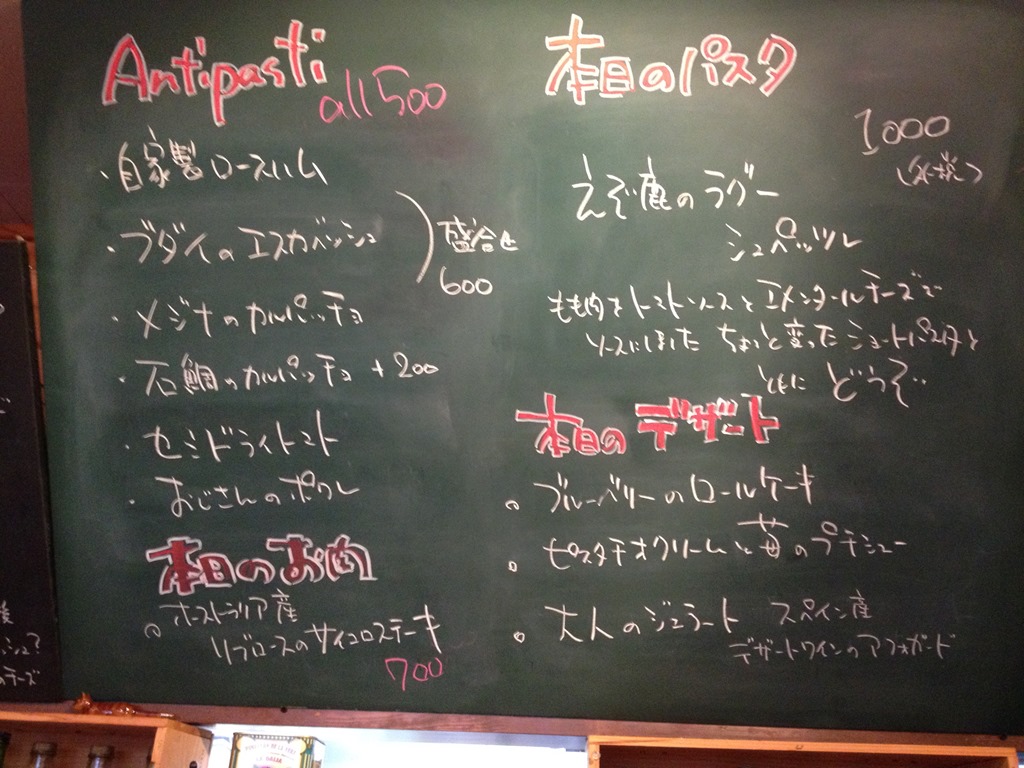 Antipasti
all 500
・自家製ロースハム
・ブダイのエスカベッシュ
盛合せ
600
・メジナのカルパッチョ
・石鯛のカルパッチョ +200
・セミドライトマト
・おじさんのポワレ
本日のお肉
○オーストラリア産
リブロースのサイコロステーキ
700
本日のパスタ
1000
(外税)
えぞ鹿のラグー
シュペッツレ
もも肉をトマトソースとエメンタールチーズで
ソースにしました ちょっと変ったショートパスタと
ともに どうぞ..
本日のデザート
○ブルーベリーのロールケーキ
○ピスタチオクリームと苺のプチシュー
○大人のジェラート スペイン産
デザートワインのアフォガード